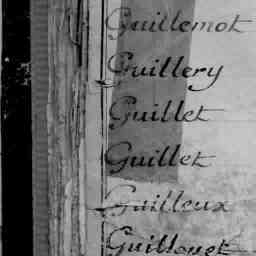 Guillemot
Guillery
Guillet
Guillet
Guilleux
Guillouet